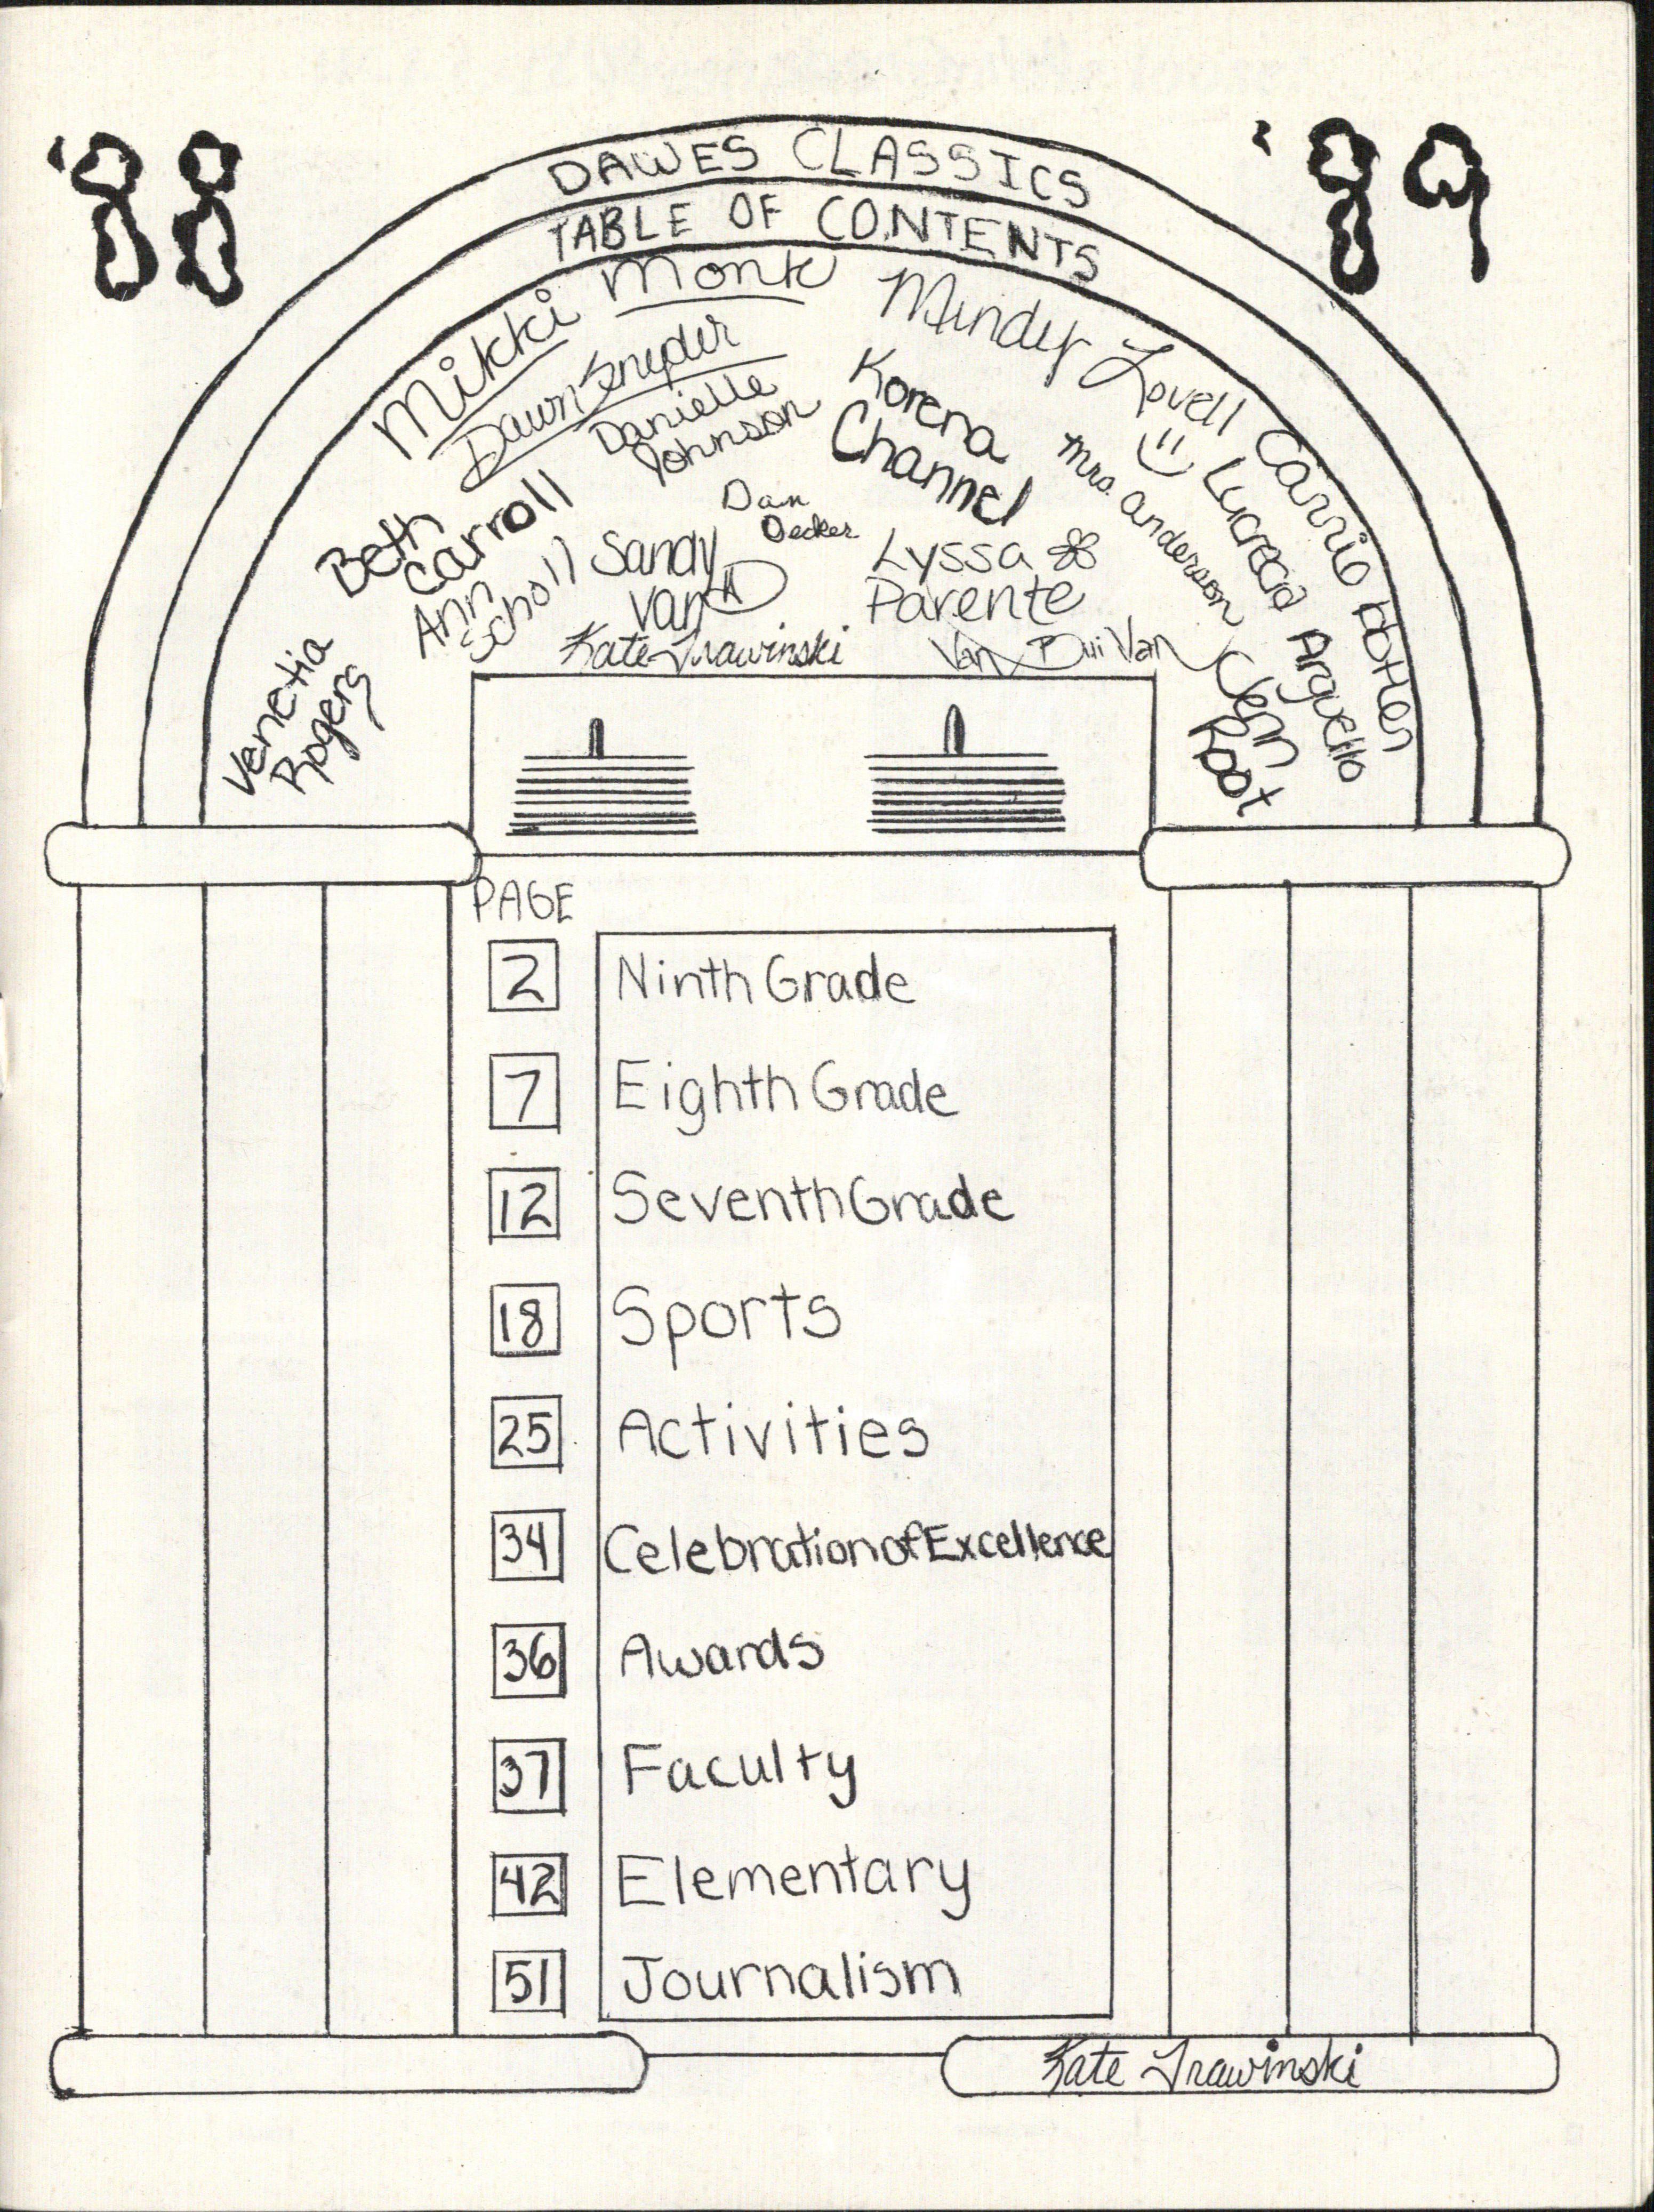 '88
'89
DAWES CLASSICS
TABLE OF CONTENTS
Mikki Monk
Mindy Lovell
Dawn Snyder
Danielle
Johnson
Korena
Channel
Carrie Potter
Mrs. Anderson
Lucrecia Arguello
Beth
Carroll
Dan
Decker
Ann
Scholl
Sandy
Van
Lyssa
Parente
Kate Trawinski
Van Bui Van
Venetia
Rogers
Jenn
Root
PAGE
2 Ninth Grade
7 Eighth Grade
12 Seventh Grade
18 Sports
25 Activities
34 Celebration of Excellence
36 Awards
37 Faculty
42 Elementary
51 Journalism
Kate Trawinski